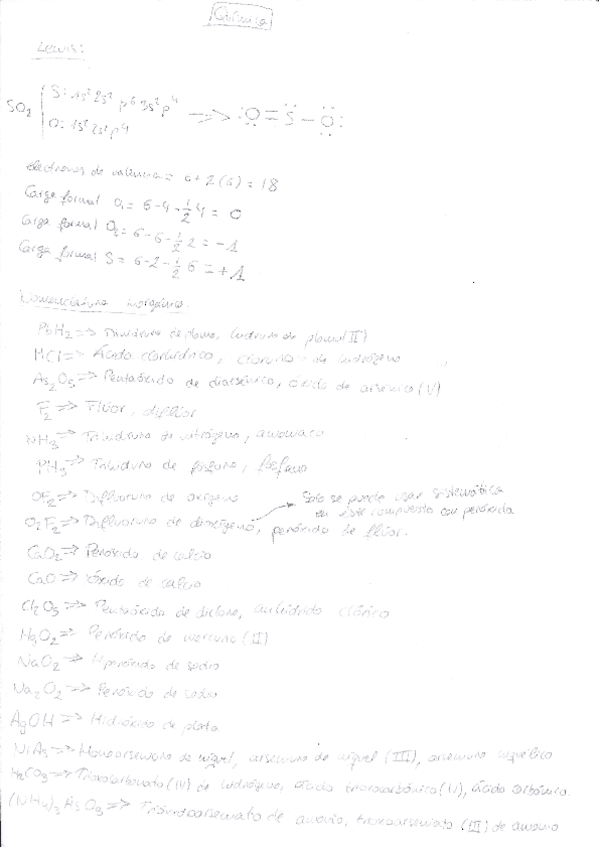 Química
Lewis:
SO₂ S: 1s² 2s² p⁶ 3s² p⁴ => :O = S - O:
O: 1s² 2s² p⁴
electrones de valencia = 6 + 2(6) = 18
Carga formal O₁ = 6 - 4 - 1/2 4 = 0
Carga formal O₂ = 6 - 6 - 1/2 2 = -1
Carga formal S = 6 - 2 - 1/2 6 = +1
Nomenclatura inorgánica
PbH₂ => Dihidruro de plomo, hidruro de plomo (II)
HCl => Ácido clorhídrico, cloruro de hidrógeno
As₂O₅ => Pentaóxido de diarsénico, óxido de arsénico (V)
F₂ => Flúor, diflúor
NH₃ => Trihidruro de nitrógeno, amoniaco
PH₃ => Trihidruro de fósforo, fosfano
OF₂ => Difluoruro de oxígeno
Solo se puede usar sistemática
en este compuesto con peróxido
O₂F₂ => Difluoruro de dioxígeno, peróxido de flúor.
CaO₂ => Peróxido de calcio
CaO => óxido de calcio
Cl₂O₅ => Pentaóxido de dicloro, anhídrido clórico
HgO₂ => Peróxido de mercurio (II)
NaO₂ => Hiperóxido de sodio
Na₂O₂ => Peróxido de sodio
AgOH => Hidróxido de plata
NiAs => Monoarseniuro de níquel, arseniuro de níquel (III), arseniuro niquélico
H₂CO₃ => Trioxocarbonato (IV) de hidrógeno, ácido trioxocarbónico (IV), ácido carbónico.
(NH₄)₃AsO₃ => de amonio, trioxoarseniato (III) de amonio